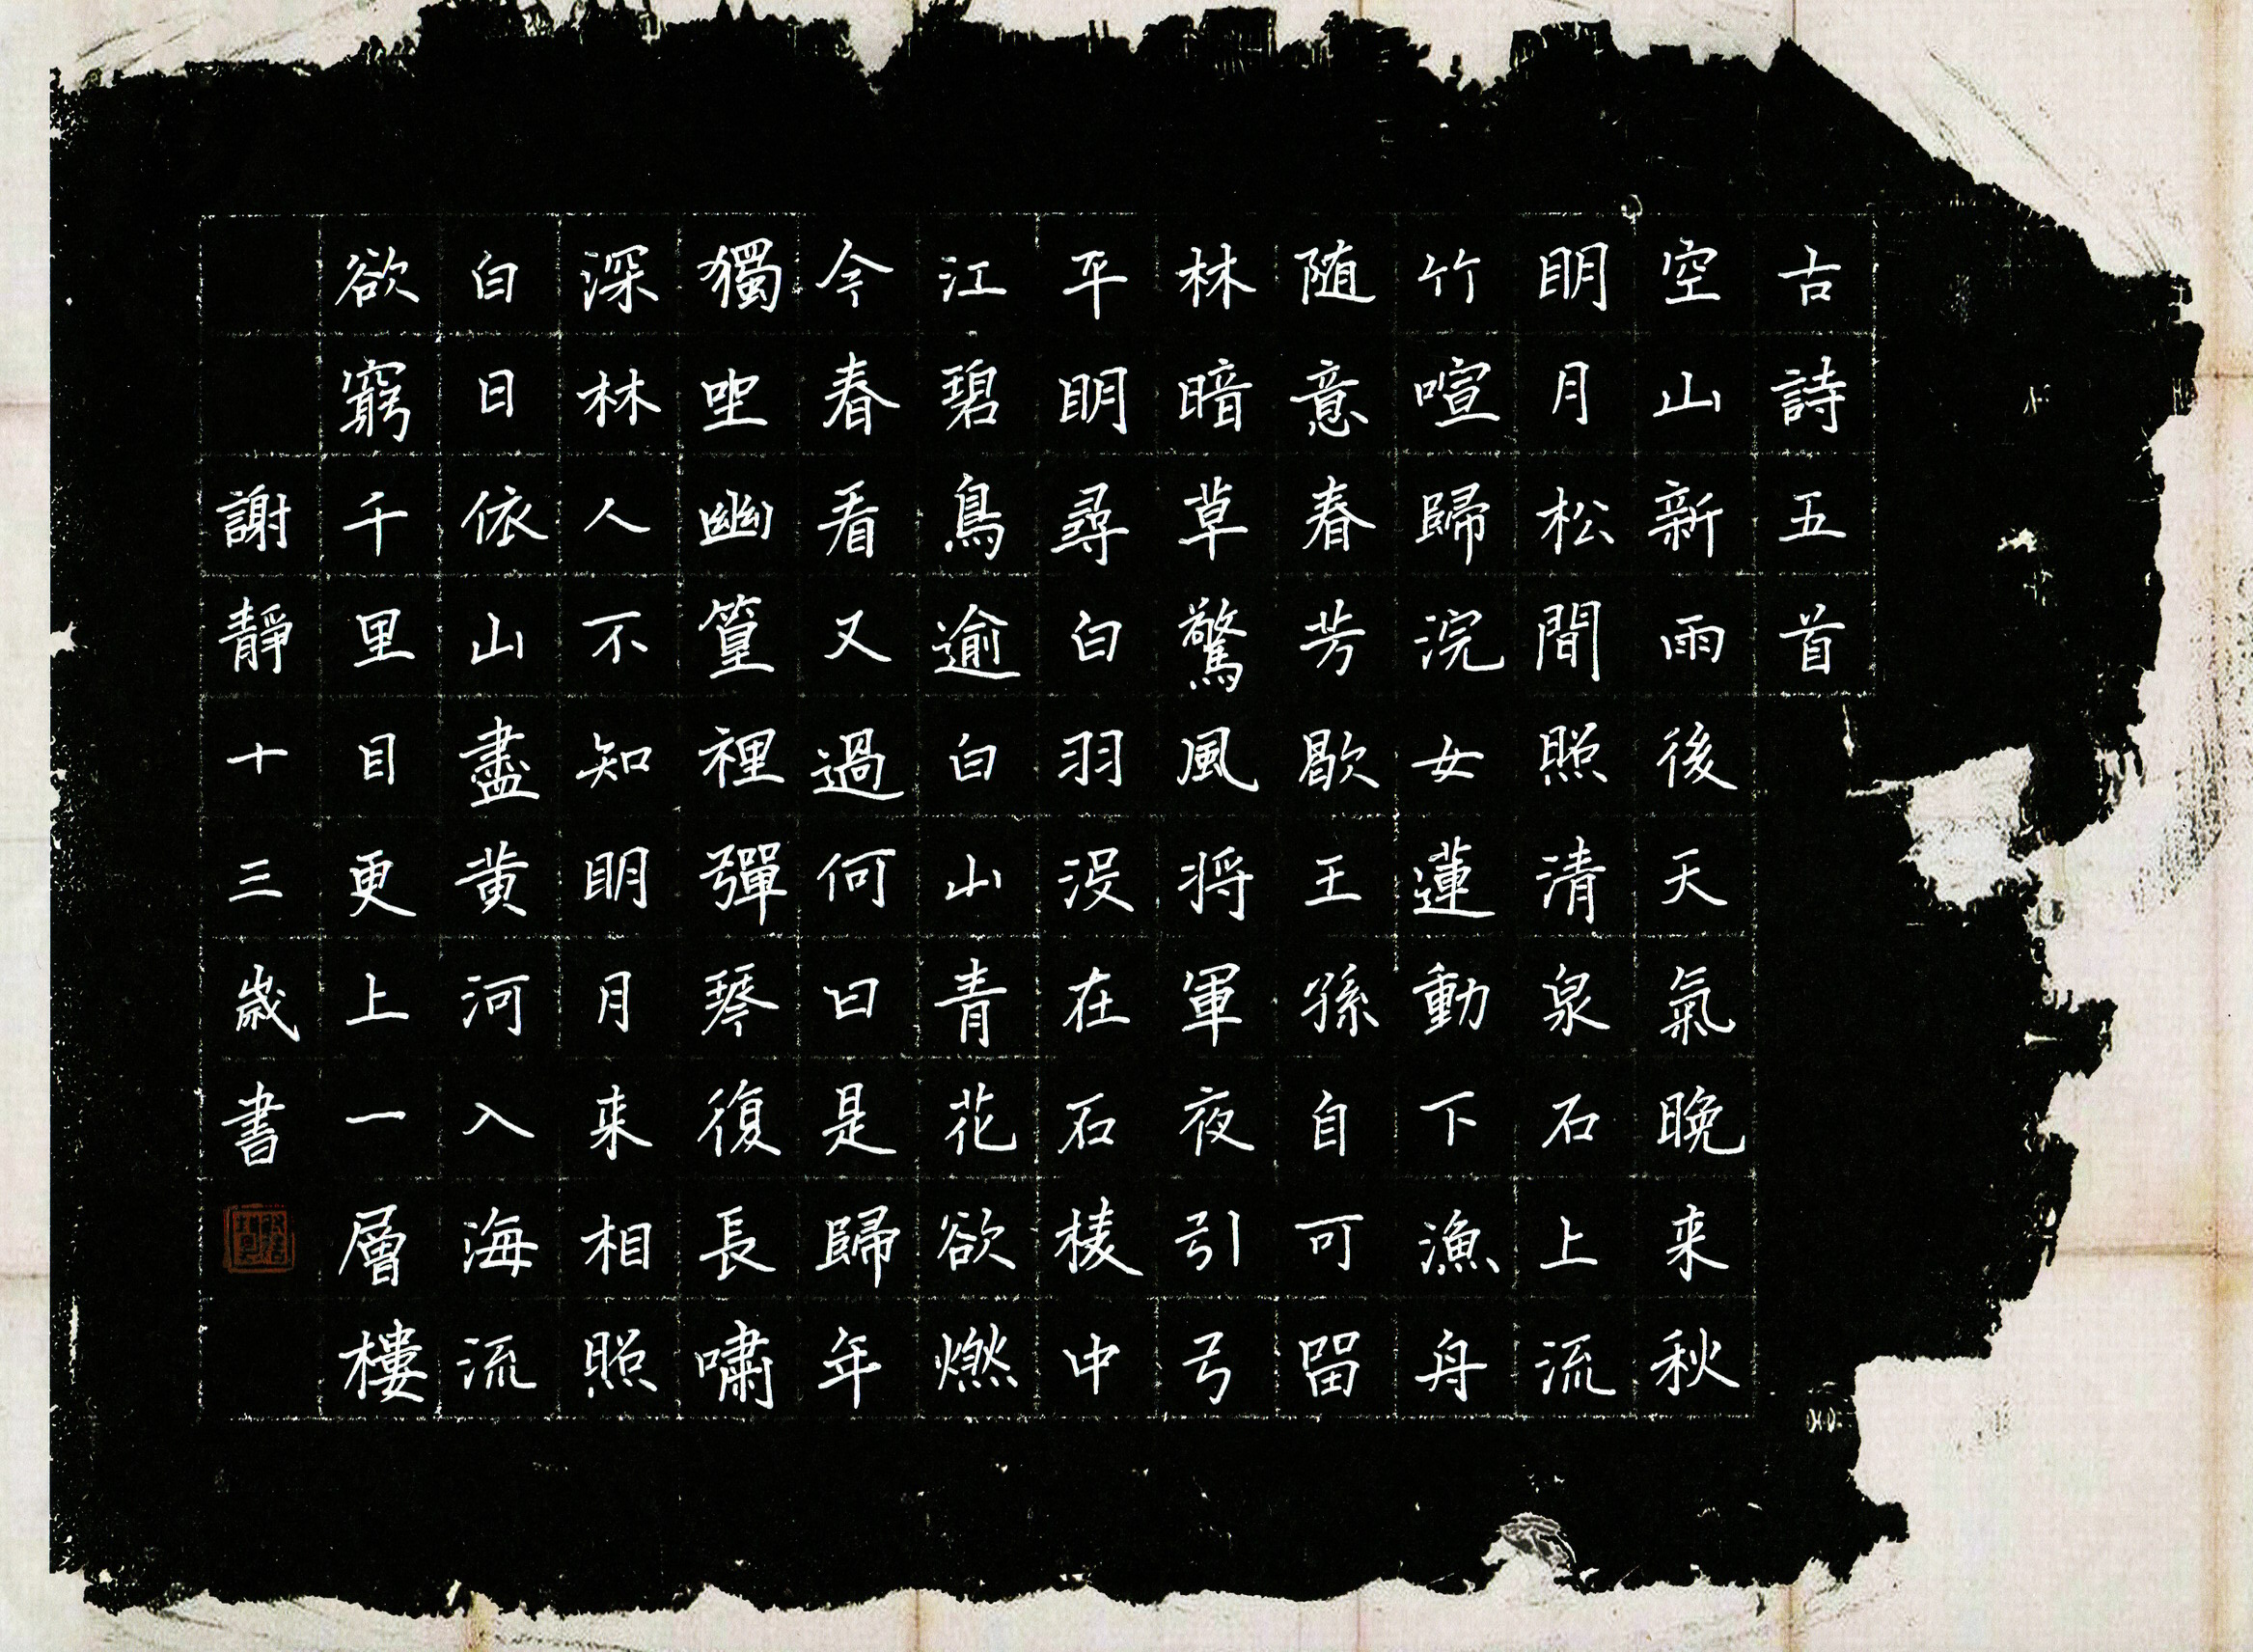 古詩五首
空山新雨後天氣晚来秋
明月松間照清泉石上流
竹喧歸浣女蓮動下漁舟
随意春芳歇王孫自可留
林暗草驚風将軍夜引弓
平明尋白羽没在石棱中
江碧鳥逾白山青花欲燃
今春看又過何日是歸年
獨坐幽篁裡彈琴復長嘯
深林人不知明月来相照
白日依山盡黄河入海流
欲窮千里目更上一層樓
謝靜十三歲書